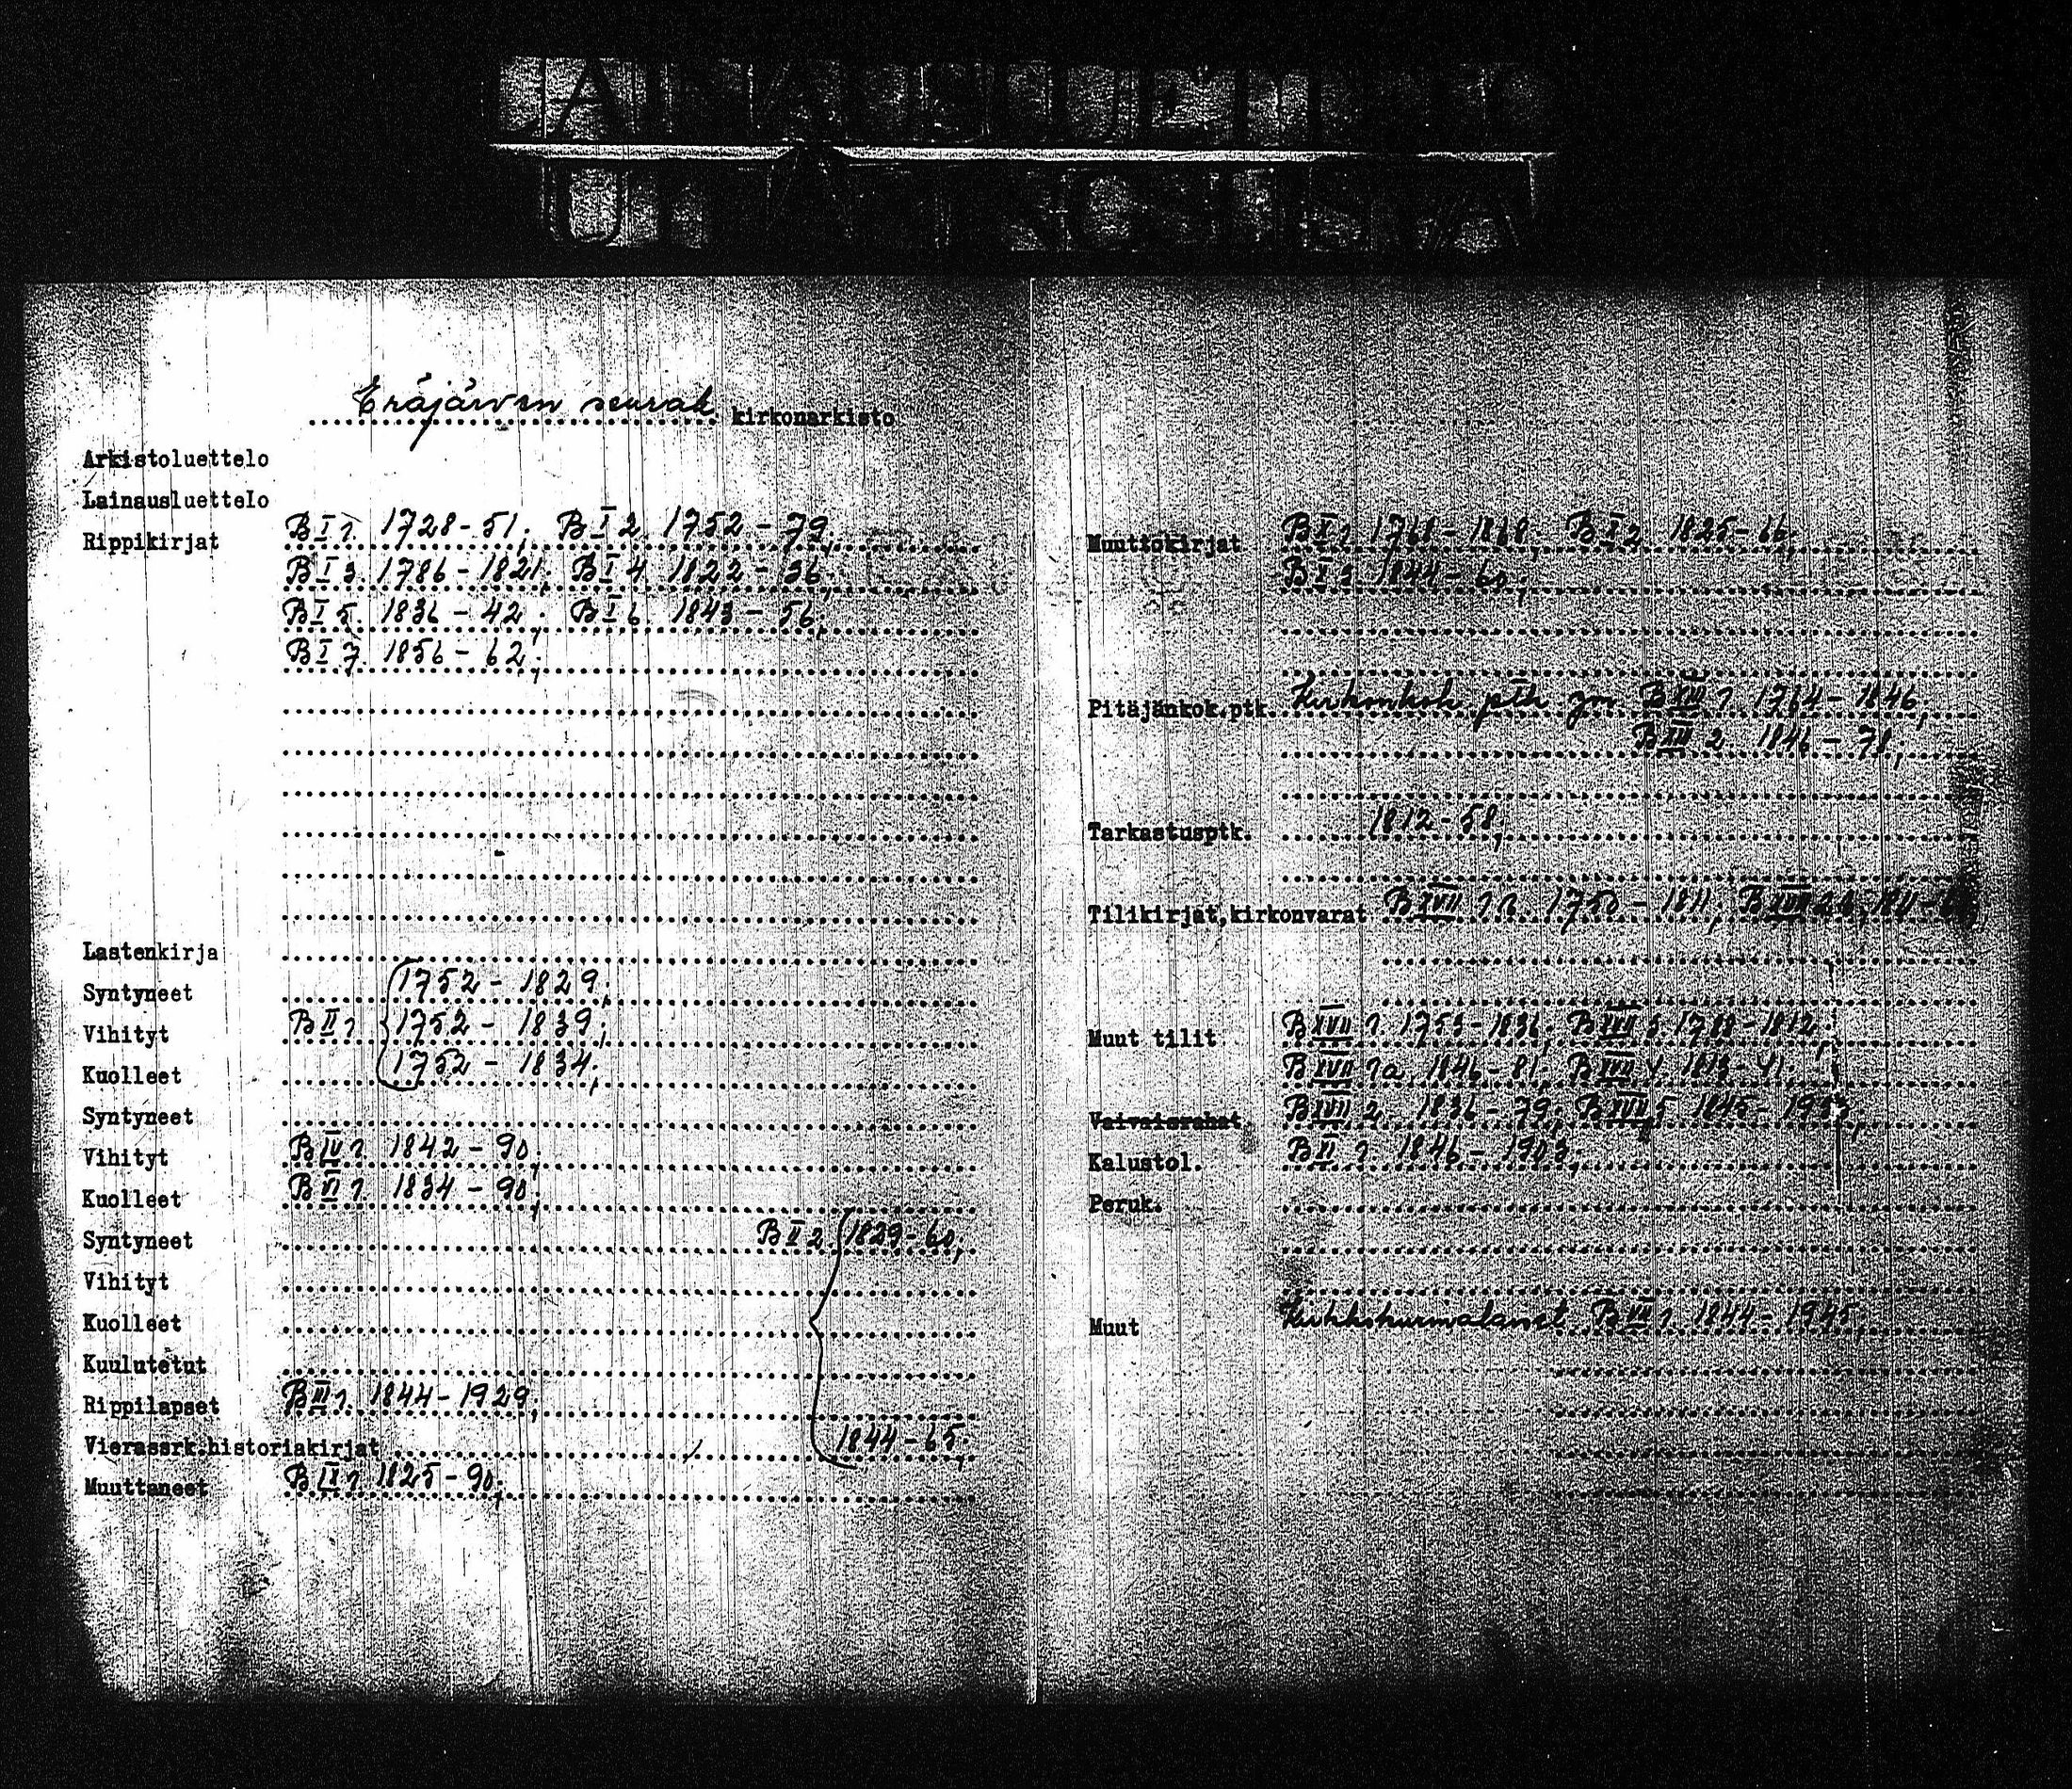 Eräjärven seurak. kirkonarkisto
Arkistoluettelo
Lainausluettelo
Rippikirjat B I 1. 1728-51; B I 2. 1752-79;
B I 3. 1786-1821; B I 4. 1822-36;
B I 5. 1836-42; B I 6. 1843-56;
B I 7. 1856-62;
Lastenkirja
Syntyneet 1752-1829;
Vihityt B II 1 1752-1839;
Kuolleet 1752-1834;
Syntyneet
Vihityt B IV 1. 1842-90;
Kuolleet B VI 1. 1834-90;
Syntyneet B II 2. 1829-60;
Vihityt
Kuolleet
Kuulutetut
Rippilapset B III 1. 1844-1929;
Vierassrk.historiakirjat 1844-65;
Muuttaneet B IX 1. 1825-90;
Muuttokirjat B X 1 1768-1868; B X 2 1825-66;
B X 3. 1844-60;
Pitäjänkok.ptk. Kirkonkok. ptk 1764-1846;
2. 1846-78;
Tarkastusptk. 1812-58;
Tilikirjat,kirkonvarat B XVII 1750-1811;
Muut tilit B XVII 1. 1753-1836; B XVII 3. 1788-1812;
B XVII 1a. 1846-81; B XVII 4. 1813-41;
Vaivaisrahat B XVII 2. 1836-79; B XVII 5 1845-1953;
Kalustol. 1846-1903;
Peruk.
Muut 1844-1945;